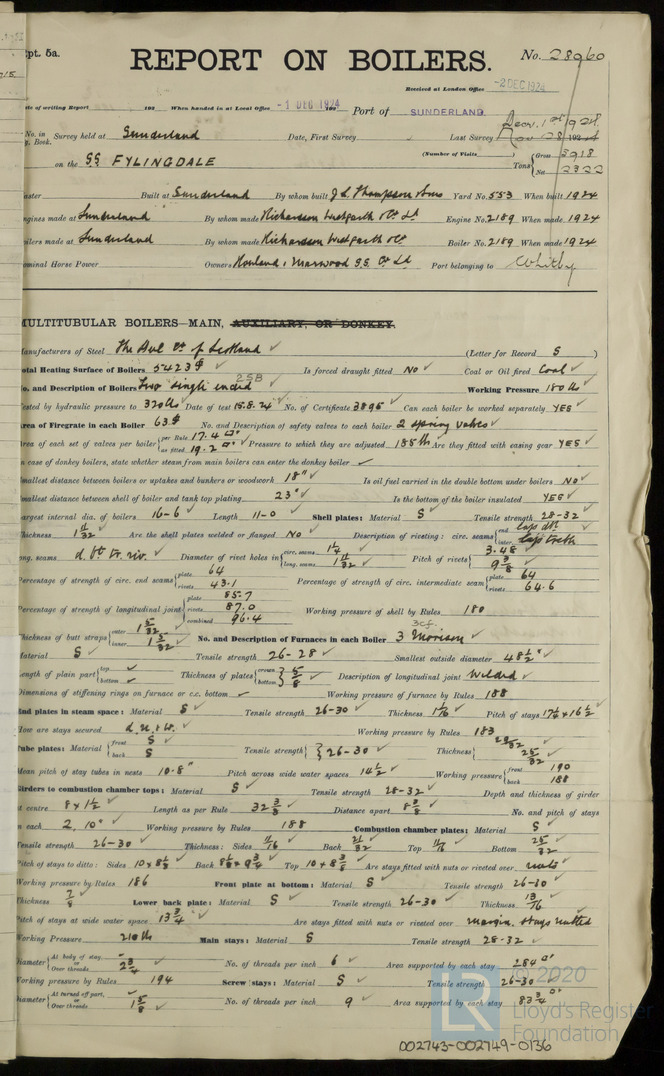 Rpt. 5a.
REPORT ON BOILERS.
No. 28960
Received at London Office -2 DEC 1924
Date of writing Report 192 When handed in at Local Office -1 DEC 1924 Port of SUNDERLAND
No. in Survey held at Sunderland Date, First Survey Last Survey Decr. 1st 1924
Book.
(Number of Visits
on the SS FYLINGDALE Tons { Gross 3918
Net 2322
Built at Sunderland By whom built J. L. Thompson & Sons Yard No. 553 When built 1924
Engines made at Sunderland By whom made Richardson Westgarth & Co Ld Engine No. 2189 When made 1924
Boilers made at Sunderland By whom made Richardson Westgarth & Co Boiler No. 2189 When made 1924
Nominal Horse Power Owners Headlam & Marwood S.S. Co Ld Port belonging to Whitby
MULTITUBULAR BOILERS—MAIN, AUXILIARY, OR DONKEY.
Manufacturers of Steel The Steel Co of Scotland (Letter for Record S )
Total Heating Surface of Boilers 5423 Is forced draught fitted No Coal or Oil fired Coal
No. and Description of Boilers Two single ended 2SB Working Pressure 180 lbs
Tested by hydraulic pressure to 320 lbs Date of test 15.8.24 No. of Certificate 3895 Can each boiler be worked separately YES
Area of Firegrate in each Boiler 63 No. and Description of safety valves to each boiler 2 spring valves
Area of each set of valves per boiler { per Rule 17.4 as fitted 19.2 Pressure to which they are adjusted 185 lb Are they fitted with easing gear YES
In case of donkey boilers, state whether steam from main boilers can enter the donkey boiler
Smallest distance between boilers or uptakes and bunkers or woodwork 18" Is oil fuel carried in the double bottom under boilers No
Smallest distance between shell of boiler and tank top plating 23" Is the bottom of the boiler insulated YES
Largest internal dia. of boilers 16-6 Length 11-0 Shell plates: Material S Tensile strength 28-32
Thickness 1 1/32 Are the shell plates welded or flanged No Description of riveting: circ. seams { end lap dbl inter. lap treble
long. seams d. bt. tr. riv. Diameter of rivet holes in { circ. seams 1 1/4 long. seams 1 11/32 Pitch of rivets { 3.48 9 3/8
Percentage of strength of circ. end seams { plate 64 rivets 43.1 Percentage of strength of circ. intermediate seam { plate 64 rivets 64.6
Percentage of strength of longitudinal joint { plate 85.7 rivets 87.0 combined 96.4 Working pressure of shell by Rules 180
Thickness of butt straps { outer 1 5/32 inner 1 5/32 No. and Description of Furnaces in each Boiler 3 Morison 3cf.
Material S Tensile strength 26-28 Smallest outside diameter 48 1/2"
Length of plain part { top bottom Thickness of plates { crown bottom } 5/8 Description of longitudinal joint Welded
Dimensions of stiffening rings on furnace or c.c. bottom Working pressure of furnace by Rules 188
End plates in steam space: Material S Tensile strength 26-30 Thickness 1 1/16 Pitch of stays 17 1/4 x 16 1/2
How are stays secured d.n.+w. Working pressure by Rules 183
Tube plates: Material { front S back S Tensile strength { } 26-30 Thickness { 29/32 25/32
Mean pitch of stay tubes in nests 10.8" Pitch across wide water spaces 14 1/2 Working pressure { front 190 back 188
Girders to combustion chamber tops: Material S Tensile strength 28-32 Depth and thickness of girder
at centre 8 x 1 1/2 Length as per Rule 32 3/8 Distance apart 8 3/8 No. and pitch of stays
in each 2, 10" Working pressure by Rules 188 Combustion chamber plates: Material S
Tensile strength 26-30 Thickness: Sides 11/16 Back 21/32 Top 11/16 Bottom 25/32
Pitch of stays to ditto: Sides 10 x 8 1/2 Back 8 1/2 x 9 3/4 Top 10 x 8 3/8 Are stays fitted with nuts or riveted over nuts
Working pressure by Rules 186 Front plate at bottom: Material S Tensile strength 26-30
Thickness 7/8 Lower back plate: Material S Tensile strength 26-30 Thickness 13/16
Pitch of stays at wide water space 13 3/4 Are stays fitted with nuts or riveted over margin stays nutted
Working Pressure 210 lb Main stays: Material S Tensile strength 28-32
Diameter { At body of stay, or Over threads 2 3/4 No. of threads per inch 6 Area supported by each stay 284
Working pressure by Rules 194 Screw stays: Material S Tensile strength 26-30
Diameter { At turned off part, or Over threads 1 5/8 No. of threads per inch 9 Area supported by each stay 83 3/4
© 2020
Lloyd's Register
Foundation
002743-002749-0136